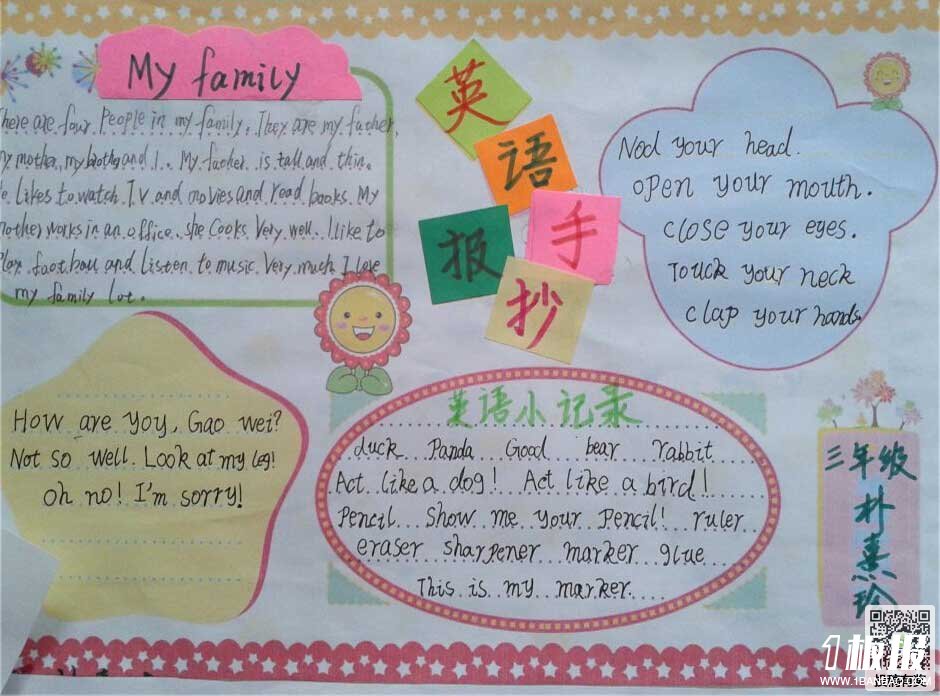 My family
here are four People in my family. They are my father,
my mother, my brothy and I. My father. is tall and thin.
e likes to watch T.V and movies and read books. My
mother works in an office. she Cooks Very well. I like to
Play football and listen to music. Very much I love
my family lot.
英
语
手
抄
报
Nod your head.
open your mouth.
close your eyes.
Touck your neck
clap your hands.
How are you, Gao wei?
Not so well. Look at my leg!
oh no! I'm sorry!
英语小记录
duck Panda Good bear rabbit
Act like a dog! Act like a bird!
Pencil Show me your Pencil! ruler
eraser sharpener marker glue
This is my marker
三年级
朴
熹
玲
1板报
WWW.1BANBAO.COM